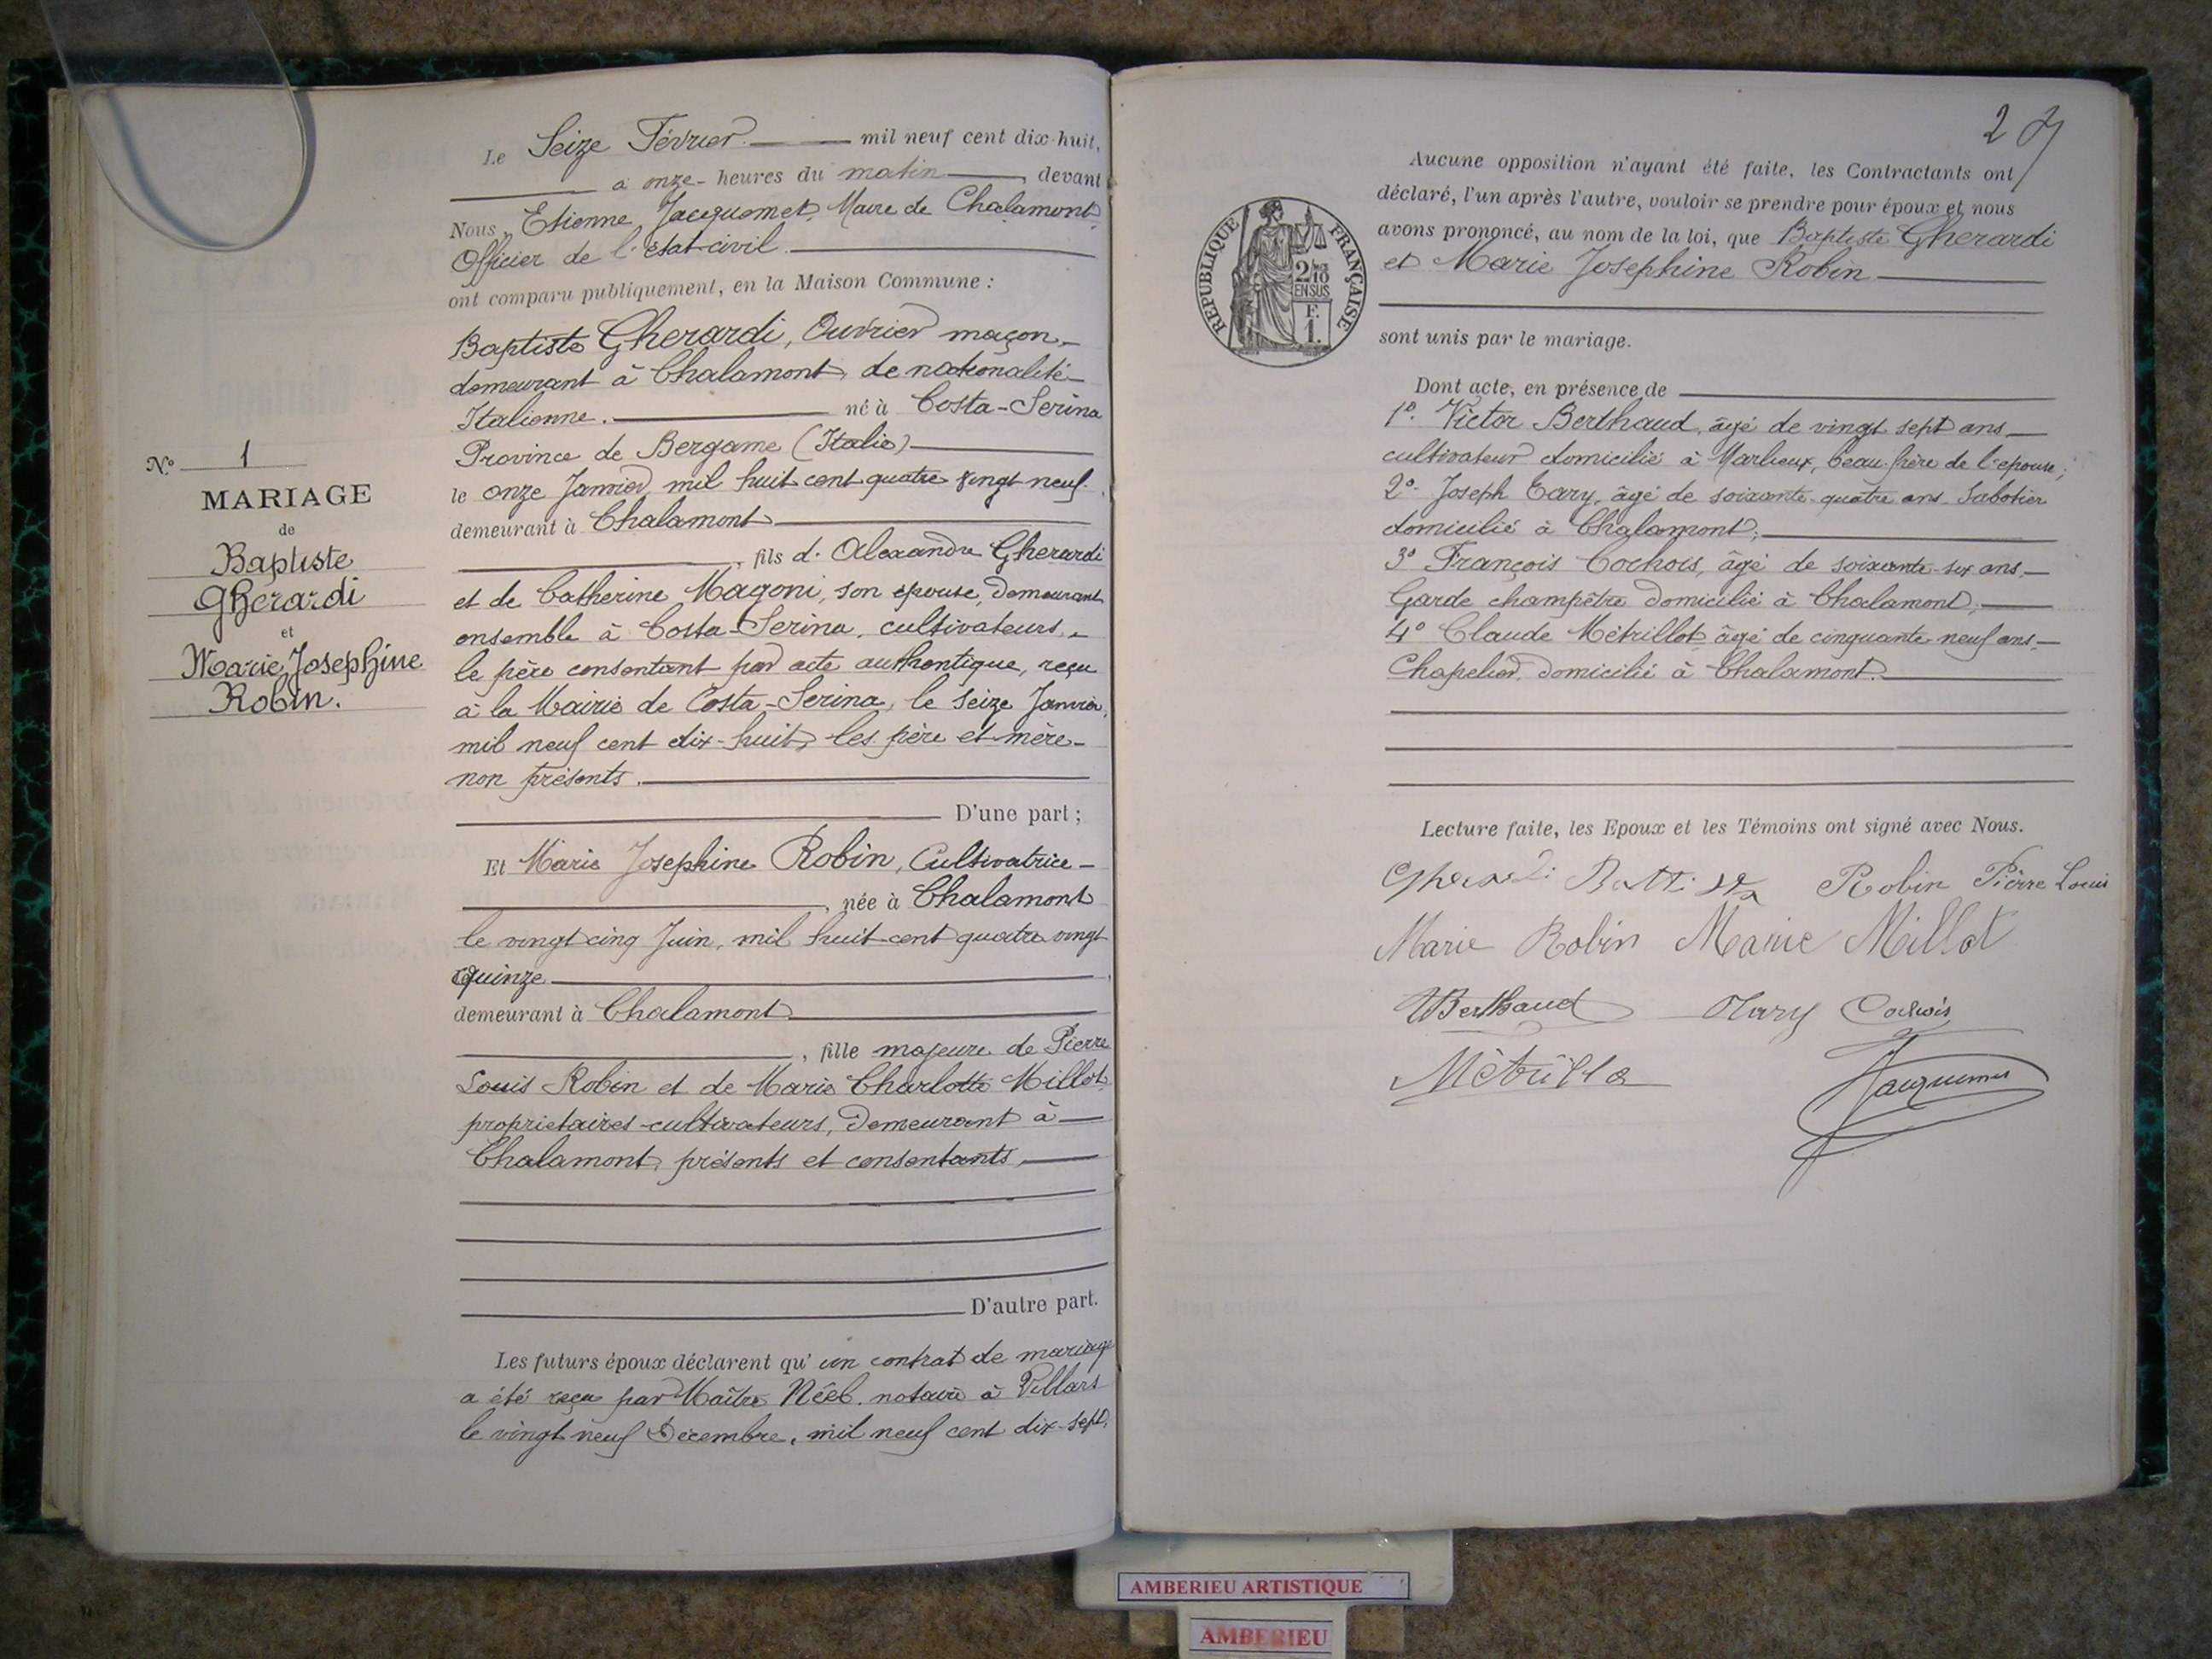 Le Seize Février mil neuf cent dix-huit,
a onze heures du matin, devant
Nous, Etienne Jacquemet, Maire de Chalamont,
Officier de l'état-civil
ont comparu publiquement, en la Maison Commune :
Baptiste Gherardi, Ouvrier maçon,
demeurant à Chalamont, de nationalité
Italienne. né à Costa-Serina
Province de Bergame (Italie)
le onze Janvier mil huit cent quatre vingt neuf
demeurant à Chalamont
, fils d' Alexandre Gherardi
et de Catherine Magoni, son épouse, demeurant
ensemble à Costa-Serina, cultivateurs,
le père consentant par acte authentique, reçu
à la Mairie de Costa-Serina, le seize Janvier
mil neuf cent dix-huit, les père et mère
non présents.
D'une part ;
Et Marie Josephine Robin, Cultivatrice
, née à Chalamont
le vingt cinq Juin, mil huit cent quatre vingt
quinze
demeurant à Chalamont
, fille majeure de Pierre
Louis Robin et de Marie Charlotte Millot
propriétaires-cultivateurs, demeurant à
Chalamont, présents et consentants,
D'autre part.
Les futurs époux déclarent qu'un contrat de mariage
a été reçu par Maître Néel, notaire à Villars
le vingt neuf Décembre, mil neuf cent dix-sept,
N° 1
MARIAGE
de
Baptiste
Gherardi
et
Marie Josephine
Robin.
2
Aucune opposition n'ayant été faite, les Contractants ont
déclaré, l'un après l'autre, vouloir se prendre pour époux et nous
avons prononcé, au nom de la loi, que Baptiste Gherardi
et Marie Josephine Robin
sont unis par le mariage.
Dont acte, en présence de
1° Victor Berthaud, âgé de vingt sept ans
cultivateur domicilié à Marlieux, beau-frère de l'épouse;
2° Joseph Cary, âgé de soixante-quatre ans Sabotier
domicilié à Chalamont;
3° François Cochois, âgé de soixante-six ans,
Garde champêtre domicilié à Chalamont;
4° Claude Métrillot âgé de cinquante-neuf ans,
Chapelier, domicilié à Chalamont.
Lecture faite, les Epoux et les Témoins ont signé avec Nous.
Gherardi Battista Robin Pierre Louis
Marie Robin Marie Millot
Berthaud Cochois
Jacquemet
REPUBLIQUE FRANÇAISE
2/10
EN SUS
F.
1.
AMBERIEU ARTISTIQUE
AMBERIEU